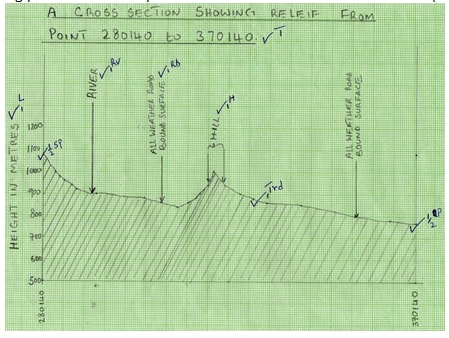 A CROSS SECTION SHOWING RELEIF FROM
POINT 280140 to 370140. T
L
RIVER
RV
ALL WEATHER ROAD
BOUND SURFACE
RB
HILL
H
ALL WEATHER ROAD
BOUND SURFACE
HEIGHT IN METRES
1200
1100
1000
900
800
700
600
500
½ SP
Trd
½
280140
370140